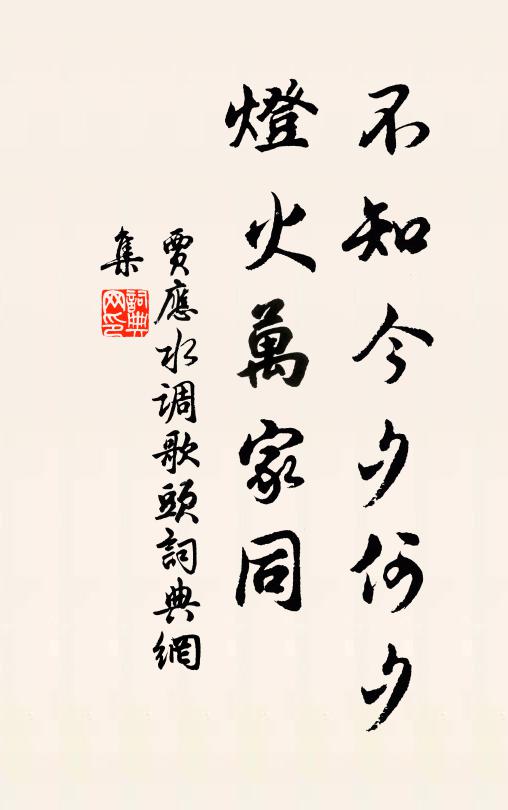 不知今夕何夕
燈火萬家同
賈應水调歌頭詞典網
集
詞典
网印